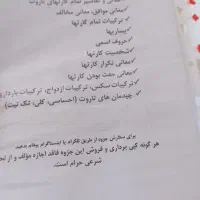 معانی و تفاسیر تمام کارتهای تاروت
✓ معانی موافق، معانی مخالف
✓ ترکیبات تمام کارتها
✓ بیماریها
✓ حروف اسمی
✓ شخصیت کارتها
✓ معانی تکرار کارتها
✓ معانی جفت بودن کارتها
✓ ترکیبات سکس، ترکیبات ازدواج، ترکیبات باردار
✓ چیدمان های تاروت (احساسی، کلی، تک نیت)
برای سفارش جزوه از طریق تلگرام یا اینستاگرام پیغام بدهید
هر گونه کپی برداری و فروش این جزوه فاقد اجازه مؤلف و از نظر
شرعی حرام است.